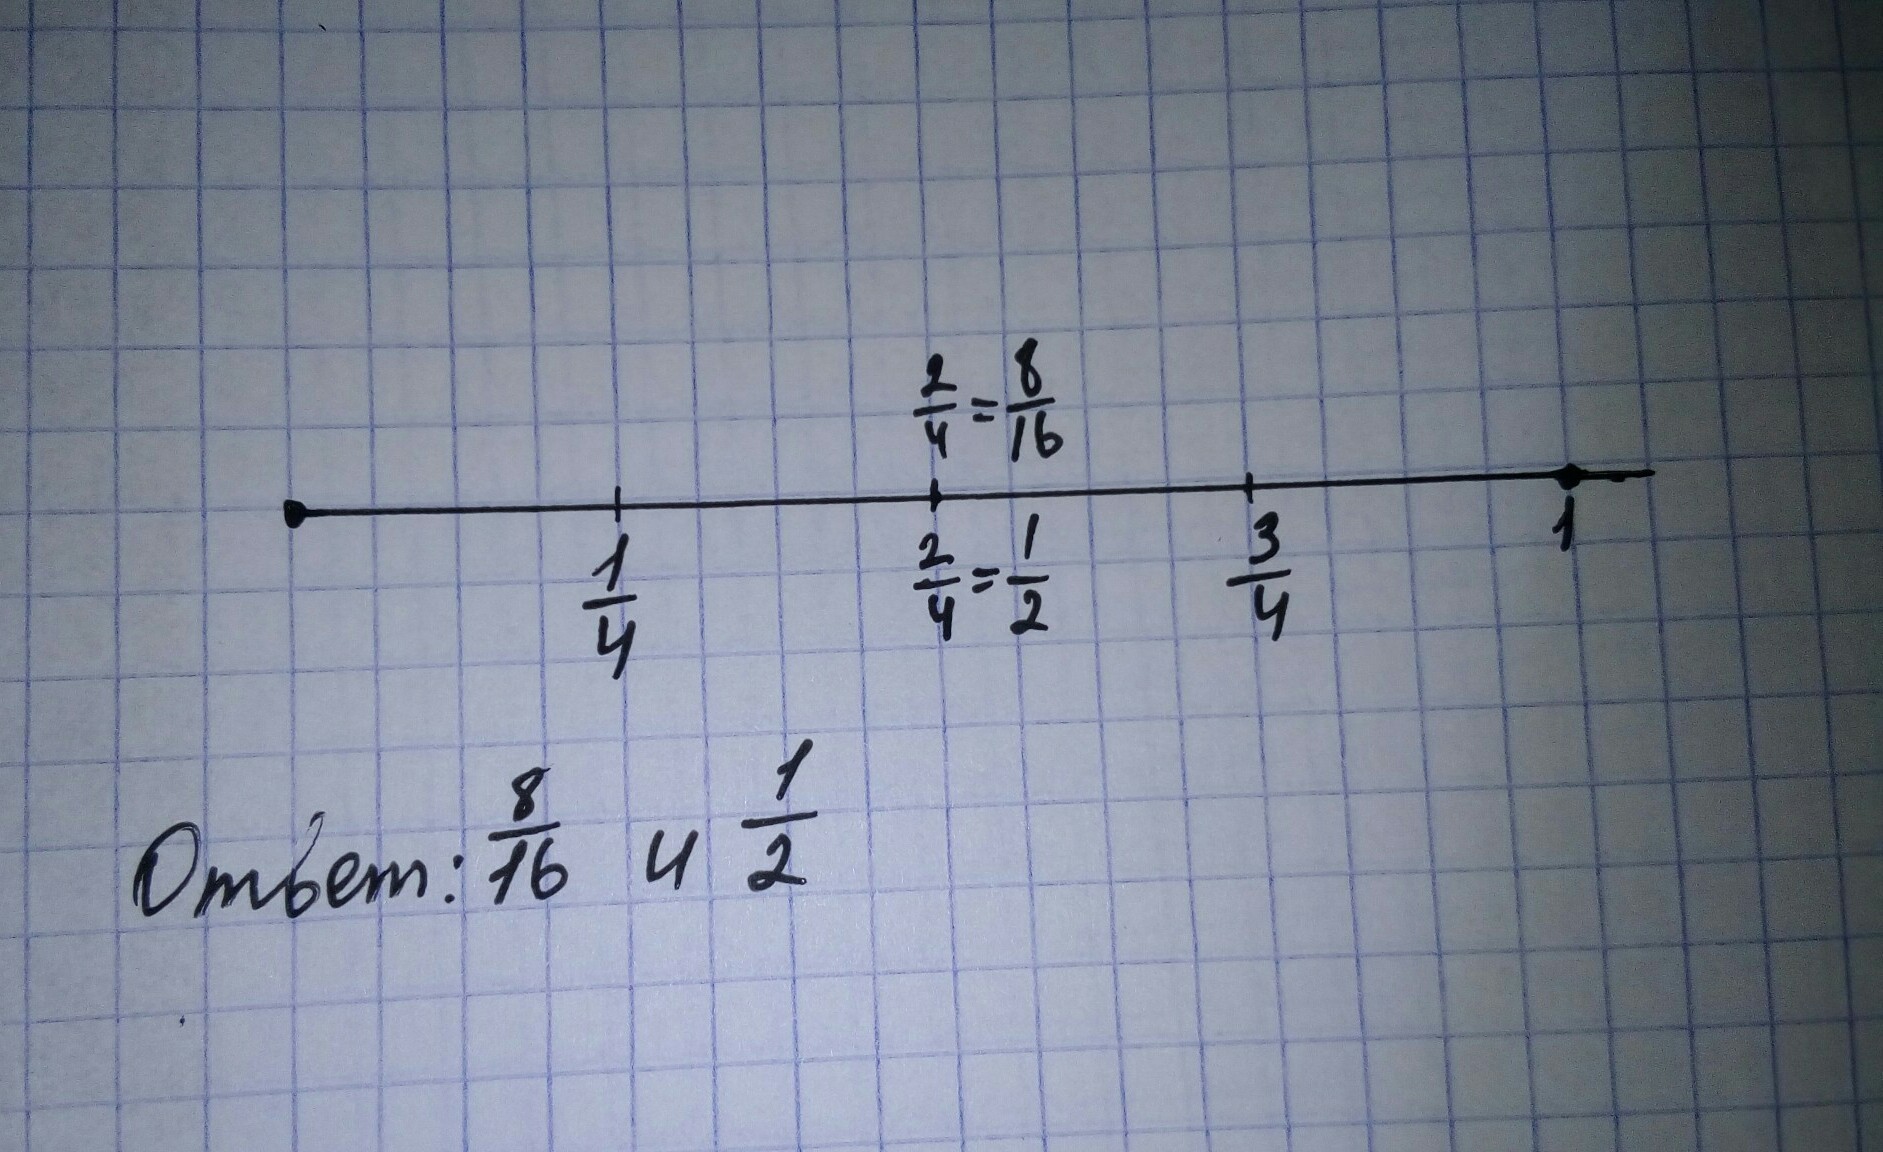 2/4 = 8/16
1/4 2/4 = 1/2 3/4 1
Ответ: 8/16 и 1/2